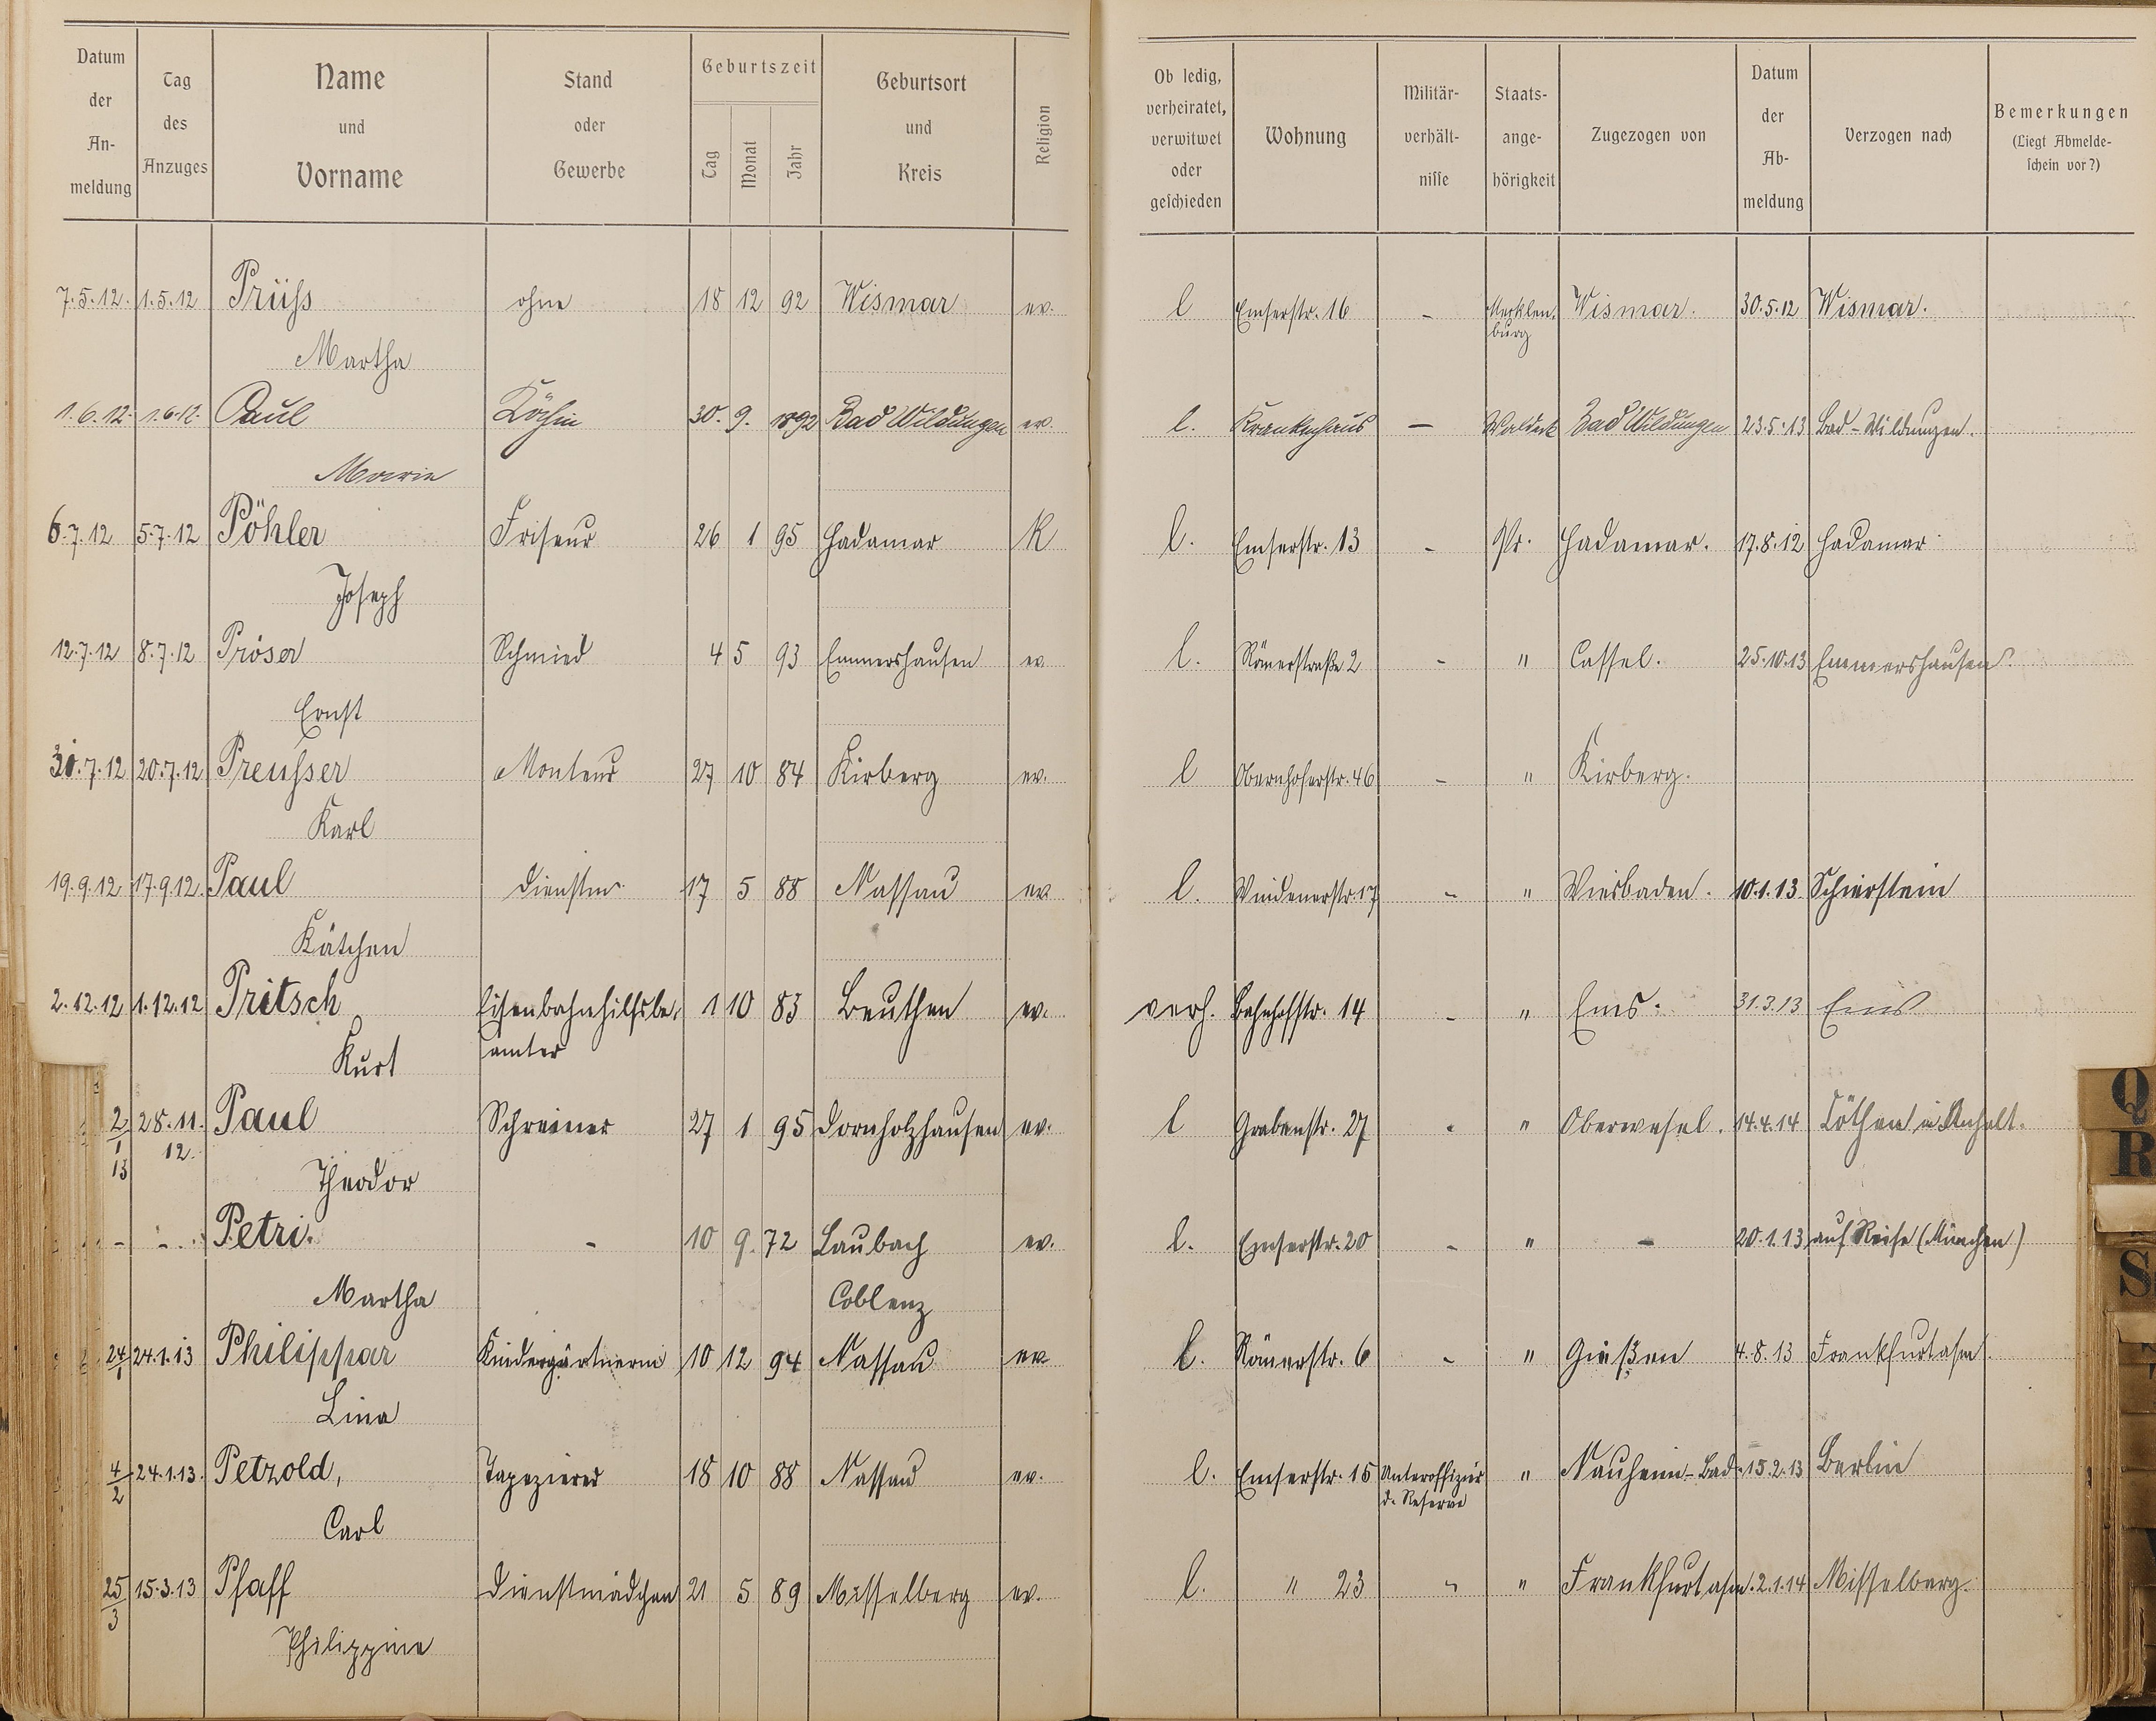 Datum der An-meldung | Tag des Anzuges | Name und Vorname | Stand oder Gewerbe | Geburtszeit Tag Monat Jahr | Geburtsort und Kreis | Religion | Ob ledig, verheiratet, verwitwet oder geschieden | Wohnung | Militär-verhält-nisse | Staats-ange-hörigkeit | Zugezogen von | Datum der Ab-meldung | Verzogen nach | Bemerkungen (Liegt Abmelde-schein vor?)
7.5.12. 1.5.12 Prüss ohne 18 12 92 Wismar ev. l Emserstr. 16 - Mecklen. Wismar. 30.5.12 Wismar.
burg
Martha
1.6.12. 1.6.12. Paul Köchin 30. 9. 1892 Bad Wildungen ev. l. Krankenhaus - Waldeck Bad Wildungen 23.5.13 Bad-Wildungen.
Marie
6.7.12 5.7.12 Pöhler Friseur 26 1 95 Hadamar K l. Emserstr. 13 - Pr. Hadamar. 17.8.12 Hadamar
Joseph
12.7.12 8.7.12 Pröser Schmied 4 5 93 Emmershausen ev l. Römerstraße 2 - " Cassel. 25.10.13 Emmershausen.
Ernst
31.7.12 20.7.12 Preusser Monteur 27 10 84 Kirberg ev. l Obernhoferstr. 46 - " Kirberg.
Karl
19.9.12 17.9.12. Paul Dienstm. 17 5 88 Nassau ev. l. Windenerstr. 17 - " Wiesbaden. 10.1.13. Schierstein
Kätchen
2.12.12 1.12.12 Pritsch Eisenbahnhilfsbe. 1 10 83 Beuthen ev. verh. Bahnhofstr. 14 - " Ems. 31.3.13 Ems
amter
Kurt
2/1 13 28.11. 12. Paul Schreiner 27 1 95 Dornholzhausen ev. l Grabenstr. 27 - " Oberwesel. 14.4.14 Cöthen in Anhalt.
Theodor
- - Petri. - 10 9. 72 Laubach ev. l. Emserstr. 20 - " - 20.1.13 auf Reise (München)
Martha Coblenz
24/1 24.1.13 Philippar Kindergärtnerin 10 12 94 Nassau ev l. Römerstr. 6 - " Gießen 4.8.13 Frankfurt a/m.
Lina
4/2 24.1.13. Petzold, Tapezierer 18 10 88 Nassau ev. l. Emserstr. 15 Unteroffizier " Nauheim-Bad. 15.2.13 Berlin
d. Reserve
Carl
25/3 15.3.13 Pfaff Dienstmädchen 21 5 89 Misselberg ev. l. " 23 " " Frankfurt a/m. 2.1.14 Misselberg.
Philippine
Q
R
S